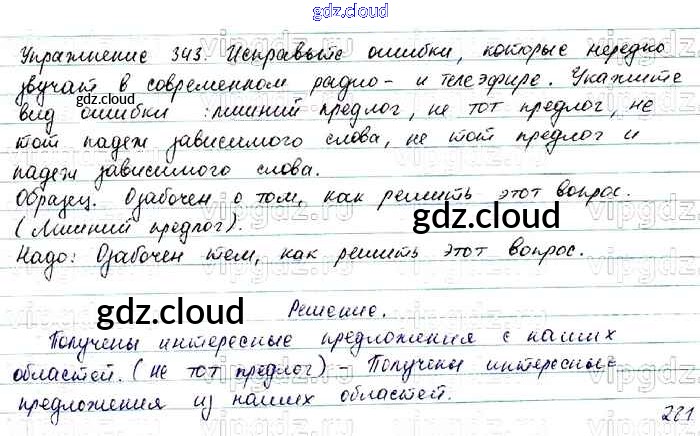 gdz.cloud
Упражнение 343. Исправьте ошибки, которые нередко
звучат в современном радио- и телеэфире. Укажите
вид ошибки : лишний предлог, не тот предлог, не
тот падеж зависимого слова, не тот предлог и
падеж зависимого слова.
Образец. Озабочен о том, как решить этот вопрос.
(Лишний предлог).
Надо: Озабочен тем, как решить этот вопрос.
gdz.cloud
gdz.cloud
gdz.cloud
Решение.
Получены интересные предложения с наших
областей. (не тот предлог) – Получены интересные
предложения из наших областей.
gdz.cloud
221